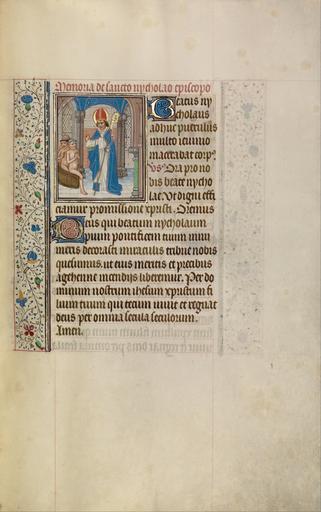 Memoria de sancto nycholao episcopo
Beatus ny
cholaus
adhuc puerulus
multo ieiunio
macerabat corp9
vs. Ora pro no
bis beate nycho
lae. Ut digni effi
ciamur promissione xpristi. Oremus
Deus qui beatum nycholaum
pium pontificem tuum innu
meris decorasti miraculis tribue nobis
quesumus ut eius meritis et precibus
a gehenne incendijs liberemur. Per do
minum nostrum ihesum xpristum fi
lium tuum qui tecum viuit et regnat
deus per omnia secula seculorum.
Amen.